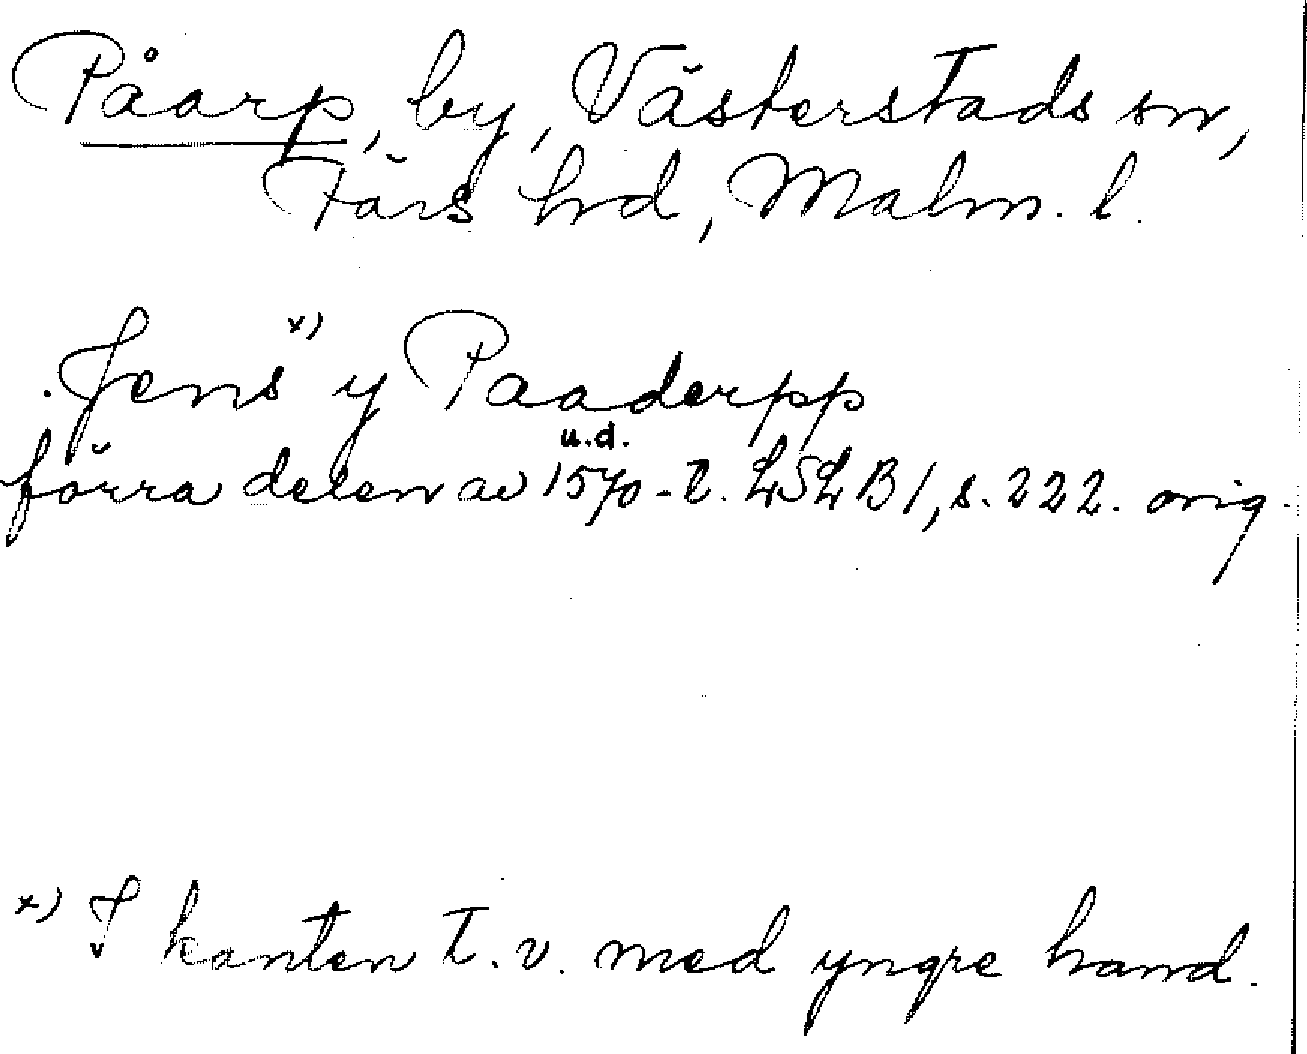 Påarp, by, Västerstads sn,
Färs hd, Malm. l.
Jens x) y Paaderpp
u.d.
förra delen av 1570-t. LSLB1, s. 222. orig.
x) I kanten t.v. med yngre hand.